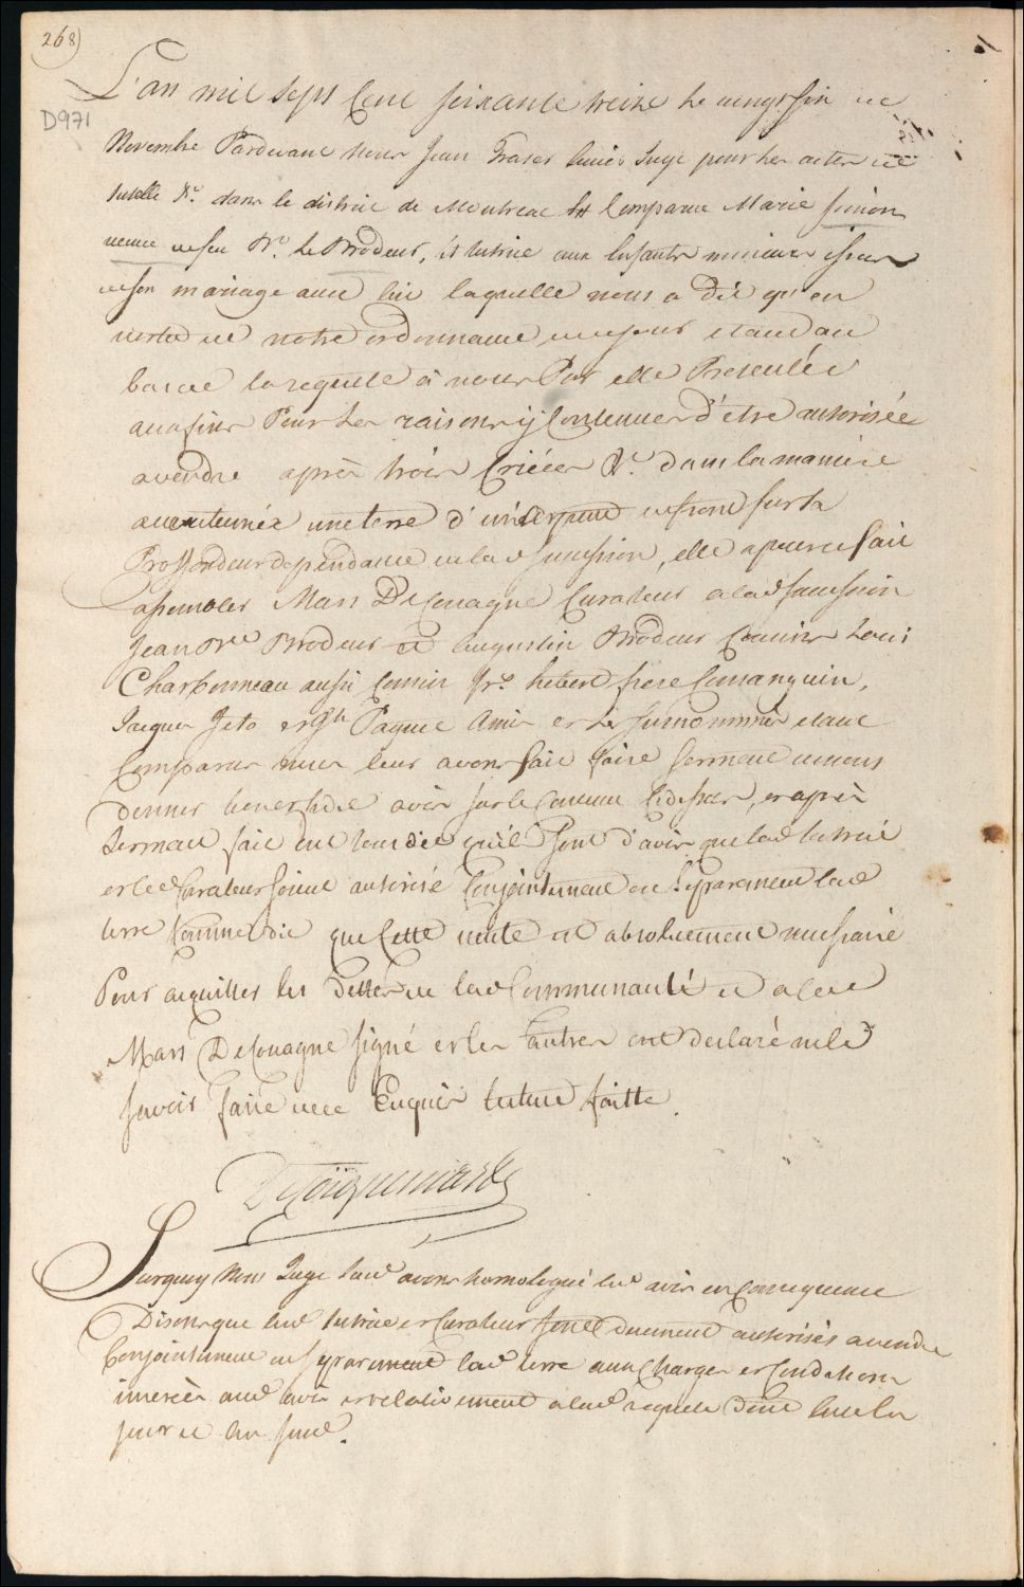 268)
D971
L'an mil sept Cent soixante treize le vingt six de
Novembre Pardevant nous Jean Fraser Ecuier Juge pour les actes de
tutelle &c. dans le district de Montreal Est Comparue Marie Simon
veuve de feu Bte. Le Brodeur, et tutrice aux Enfants mineurs issus
de son mariage avec lui laquelle nous a dit qu'en
vertu de notre ordonnance de ce jour etant au
bas de la requete à nous Par elle Presentée
aux fins Pour les raisons y Contenues d'etre autorisée
a vendre après trois Criées &c. dans la maniere
accoutumée une terre d' un arpent de front sur la
Proffondeur dependante de la de. succession, elle a pour ce fait
assembler Marc DeCouagne Curateur a la de. succession
Jean Bte. Brodeur et Augustin Brodeur Cousins Louis
Charbonneau aussi Cousin frs. hebert frere Consanguin,
Jacques Jeto et Jh. Paquet Amis et les susnommés etant
Comparus nous leur avons fait faire serment de nous
donner bon et fidel avis sur le Contenu Cidessus, et après
Serment fait ont tous dit qu'ils sont d'avis que la de. tutrice
et le de. Curateur soient autorisé Conjointement ou Separement la de.
terre Comme dit que Cette vente est absolument necessaire
Pour acquitter les Dettes de la de. Communauté et a le de.
Marc DeCouagne signé et les autres ont declaré ne le
savoir faire de ce Enquis lecture faitte.
Decoüagne
Surquoy Nous Juge sus de. avons homologué le de. avis en Consequence
Disons que les de. tutrice et Curateur sont duement autorisés a vendre
Conjointement ou separement la de. terre aux Charges et Conditions
inserés au de. avis et relativement a la de. requete
jour et an sus de.